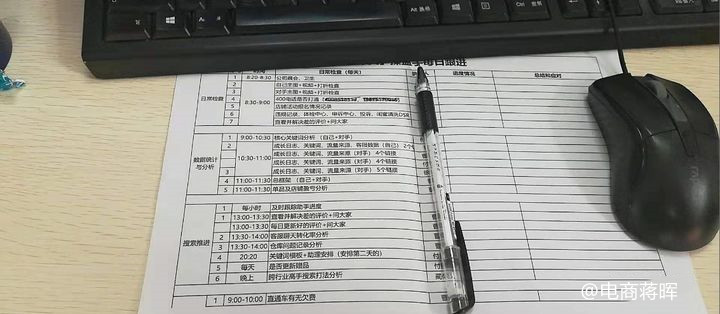 操盘手每日跟进
日常检查（每天） 进度情况 总结和应对
日常检查
1 8:20-8:30 公司晨会、卫生
2 8:30-9:00 自己主图+视频+打折检查
3 对手主图+视频+打折检查
4 400电话是否打通
5 店铺活动报名情况记录
6 违规记录、体检中心、申诉中心、投诉
7 查看并解决差的评价+问大家
数据统计与分析
1 9:00-10:30 核心关键词分析（自己+对手）
2 10:30-11:00 成长日志、关键词、流量来源、客服数据（自己）
成长日志、关键词、流量来源（对手）4个链接
成长日志、关键词、流量来源（对手）4个链接
3 成长日志、关键词、流量来源（对手）5个链接
4 11:00-11:30 总框架（自己+对手）
5 11:00-11:30 单品及店铺盈亏分析
搜索推进
1 每小时 及时跟踪助手进度
1 13:00-13:30 查看并解决差的评价+问大家
13:00-13:30 每日更新好的评价+问大家
2 13:30-14:00 客服聊天转化率分析
3 13:30-14:00 仓库问题记录分析
4 20:20 关键词模板+助理安排（安排第二天的）
5 每天 是否更新赠品
6 晚上 跨行业高手搜索打法分析
1 9:00-10:00 直通车有无欠费
Alt
Ctrl
@电商蒋晖